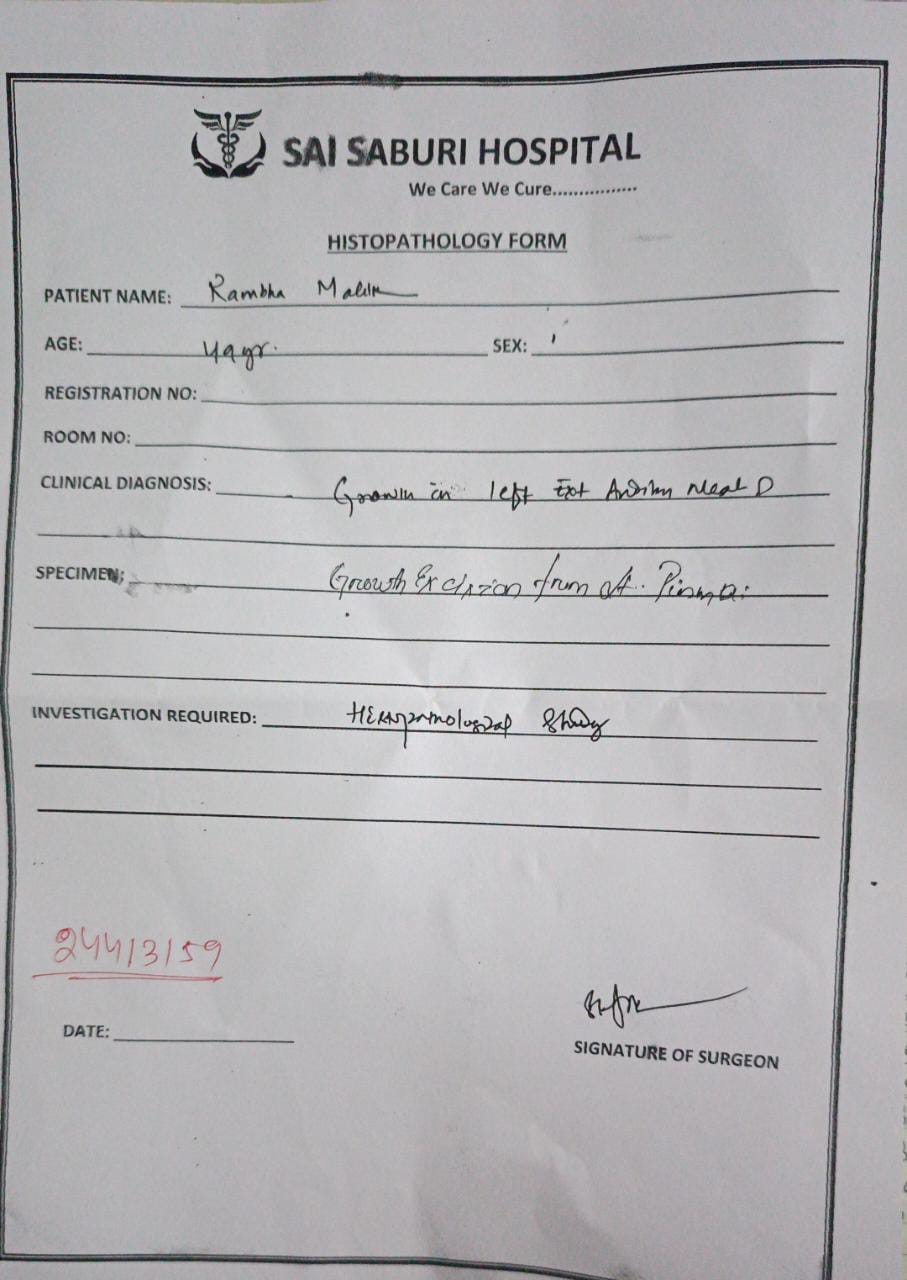 SAI SABURI HOSPITAL
We Care We Cure................
HISTOPATHOLOGY FORM
PATIENT NAME: Rambha Malik
AGE: 49yr. SEX:
REGISTRATION NO:
ROOM NO:
CLINICAL DIAGNOSIS: Growth in left Ext
SPECIMEN: Growth Excision from Pinna.
INVESTIGATION REQUIRED: Histopathological Study
24413159
DATE:
SIGNATURE OF SURGEON